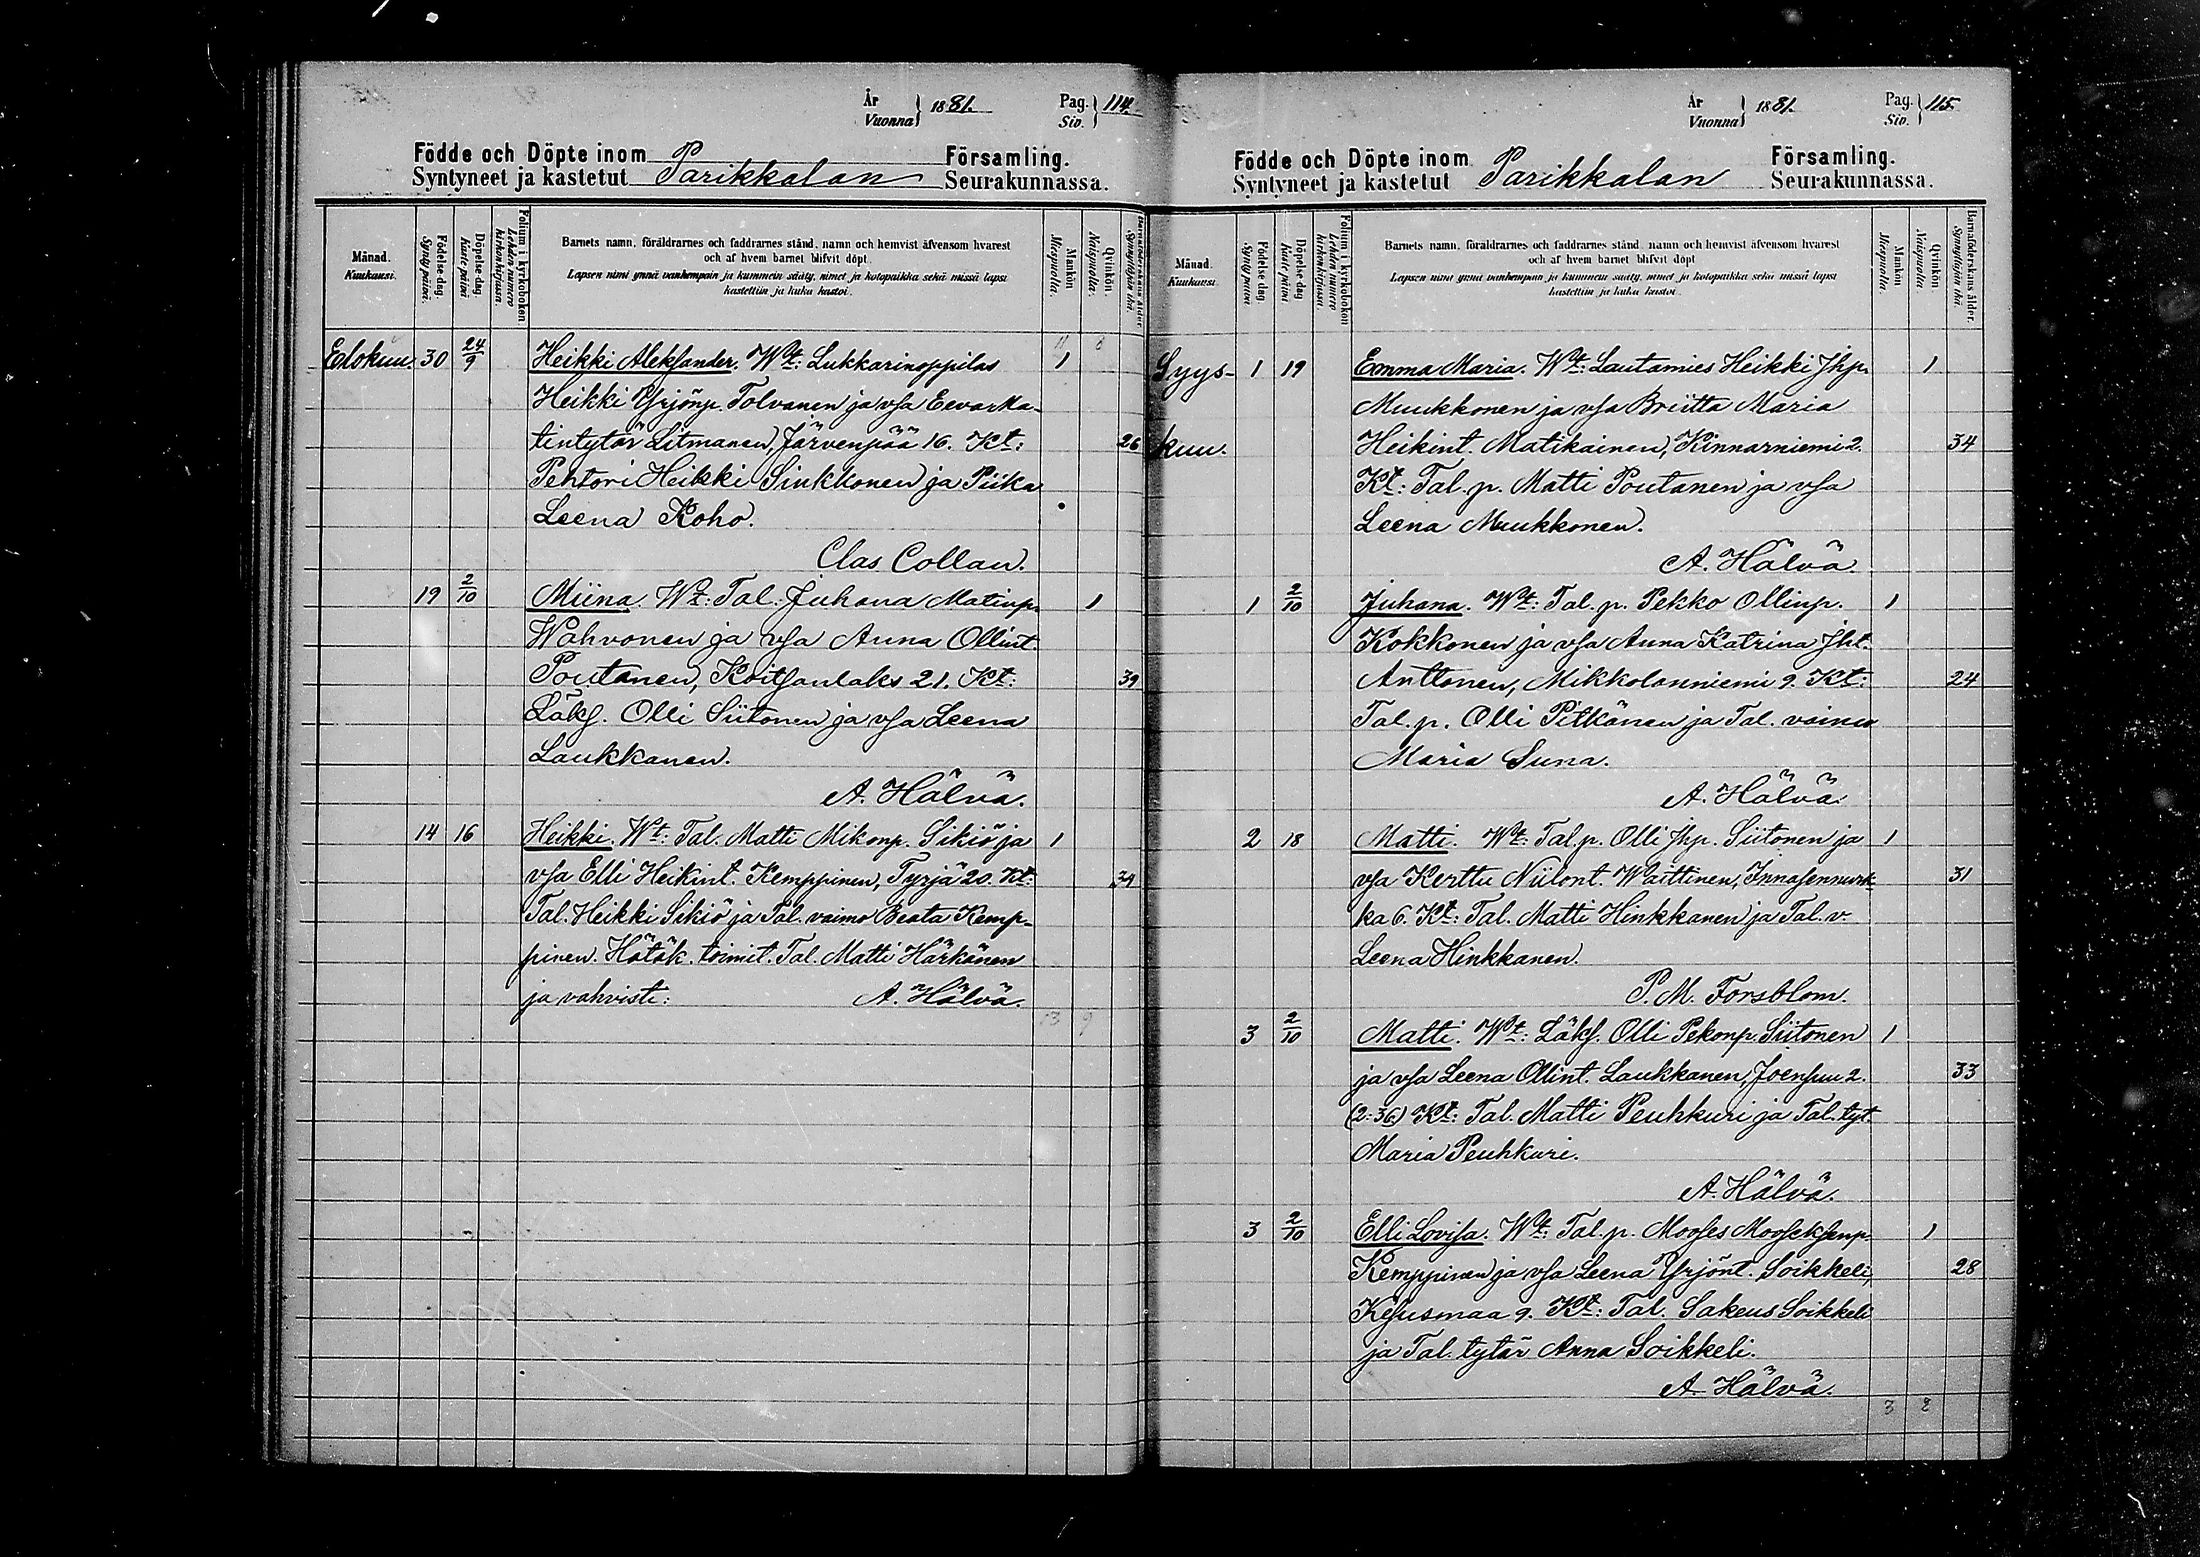 År
Vuonna } 1881. Pag.
Siv. } 114.
Födde och Döpte inom Församling.
Syntyneet ja kastetut Parikkalan Seurakunnassa.
Månad.
Kuukausi.
Födelse dag.
Synty päivä.
Döpelse dag.
Kaste päivä
Folium i kyrkoboken
Lehden numero
kirkonkirjassa.
Barnets namn, föräldrarnes och faddrarnes stånd, namn och hemvist äfvensom hvarest
och af hvem barnet blifvit döpt.
Lapsen nimi ynnä vanhempain ja kummein sääty, nimet ja kotopaikka sekä missä lapsi
kastettiin ja kuka kastoi.
Mankön
Miespuolia.
Qvinkön.
Naispuolia.
Barnaföderskans ålder.
Synnyttäjän ikä.
11 8
Elokuu. 30 24/9 Heikki Aleksander. Wt: Lukkarinoppilas 1
Heikki Yrjönp. Tolvanen ja vsa Eeva Ma-
tintytär Litmanen, Järvenpää 16. Kt: 26
Pehtori Heikki Sinkkonen ja Piika
Leena Koho.
Clas Collan.
19 2/10 Miina. Wt: Tal. Juhana Matinp. 1
Wahvonen ja vsa Anna Ollint.
Poutanen, Koitsanlaks 21. Kt: 39
Läks. Olli Siitonen ja vsa Leena
Laukkanen.
A. Hälvä.
14 16 Heikki. Wt: Tal. Matti Mikonp. Sikiö ja 1
vsa Elli Heikint. Kemppinen, Tyrjä 20. Kt: 34
Tal. Heikki Sikiö ja Tal. vaimo Beata Kemp-
pinen. Hätäk. toimit. Tal. Matti Härkönen
ja vahvisti: A. Hälvä.
13 9
År
Vuonna } 1881. Pag.
Siv. } 115.
Födde och Döpte inom Församling.
Syntyneet ja kastetut Parikkalan Seurakunnassa.
Månad.
Kuukausi.
Födelse dag.
Synty päivä.
Döpelse dag
Kaste päivä
Folium i kyrkoboken
Lehden numero
kirkonkirjassa.
Barnets namn, föräldrarnes och faddrarnes stånd, namn och hemvist äfvensom hvarest
och af hvem barnet blifvit döpt
Lapsen nimi ynnä vanhempain ja kummein sääty, nimet ja kotopaikka sekä missä lapsi
kastettiin ja kuka kastoi.
Mankön
Miespuolia.
Qvinkön
Naispuolia
Barnaföderskans ålder.
Synnyttäjän ikä.
Syys- 1 19 Emma Maria. Wt: Lautamies Heikki Jhp. 1
Muukkonen ja vsa Briitta Maria
kuu. Heikint. Matikainen, Kinnarniemi 2. 34
Kt: Tal. p. Matti Poutanen ja vsa
Leena Muukkonen.
A. Hälvä.
1 2/10 Juhana. Wt: Tal. p. Pekko Ollinp. 1
Kokkonen ja vsa Anna Katrina Jht.
Anttonen, Mikkolanniemi 9. Kt: 24
Tal. p. Olli Pitkänen ja Tal. vaimo
Maria Suna.
A. Hälvä.
2 18 Matti. Wt: Tal. p. Olli Jhp. Siitonen ja 1
vsa Kerttu Niilont. Waittinen, Innasennurk- 31
ka 6. Kt: Tal. Matti Hinkkanen ja Tal. v.
Leena Hinkkanen.
P. M. Forsblom.
3 2/10 Matti. Wt: Läks. Olli Pekonp. Siitonen 1
ja vsa Leena Ollint. Laukkanen, Joensuu 2. 33
(2:36) Kt: Tal. Matti Peuhkuri ja Tal. tyt.
Maria Peuhkuri.
A. Hälvä.
3 2/10 Elli Lovisa. Wt: Tal. p. Mooses Mooseksenp. 1
Kemppinen ja vsa Leena Yrjönt. Soikkeli, 28
Kesusmaa 9. Kt: Tal. Sakeus Soikkeli
ja Tal. tytär Anna Soikkeli.
A. Hälvä.
3 2